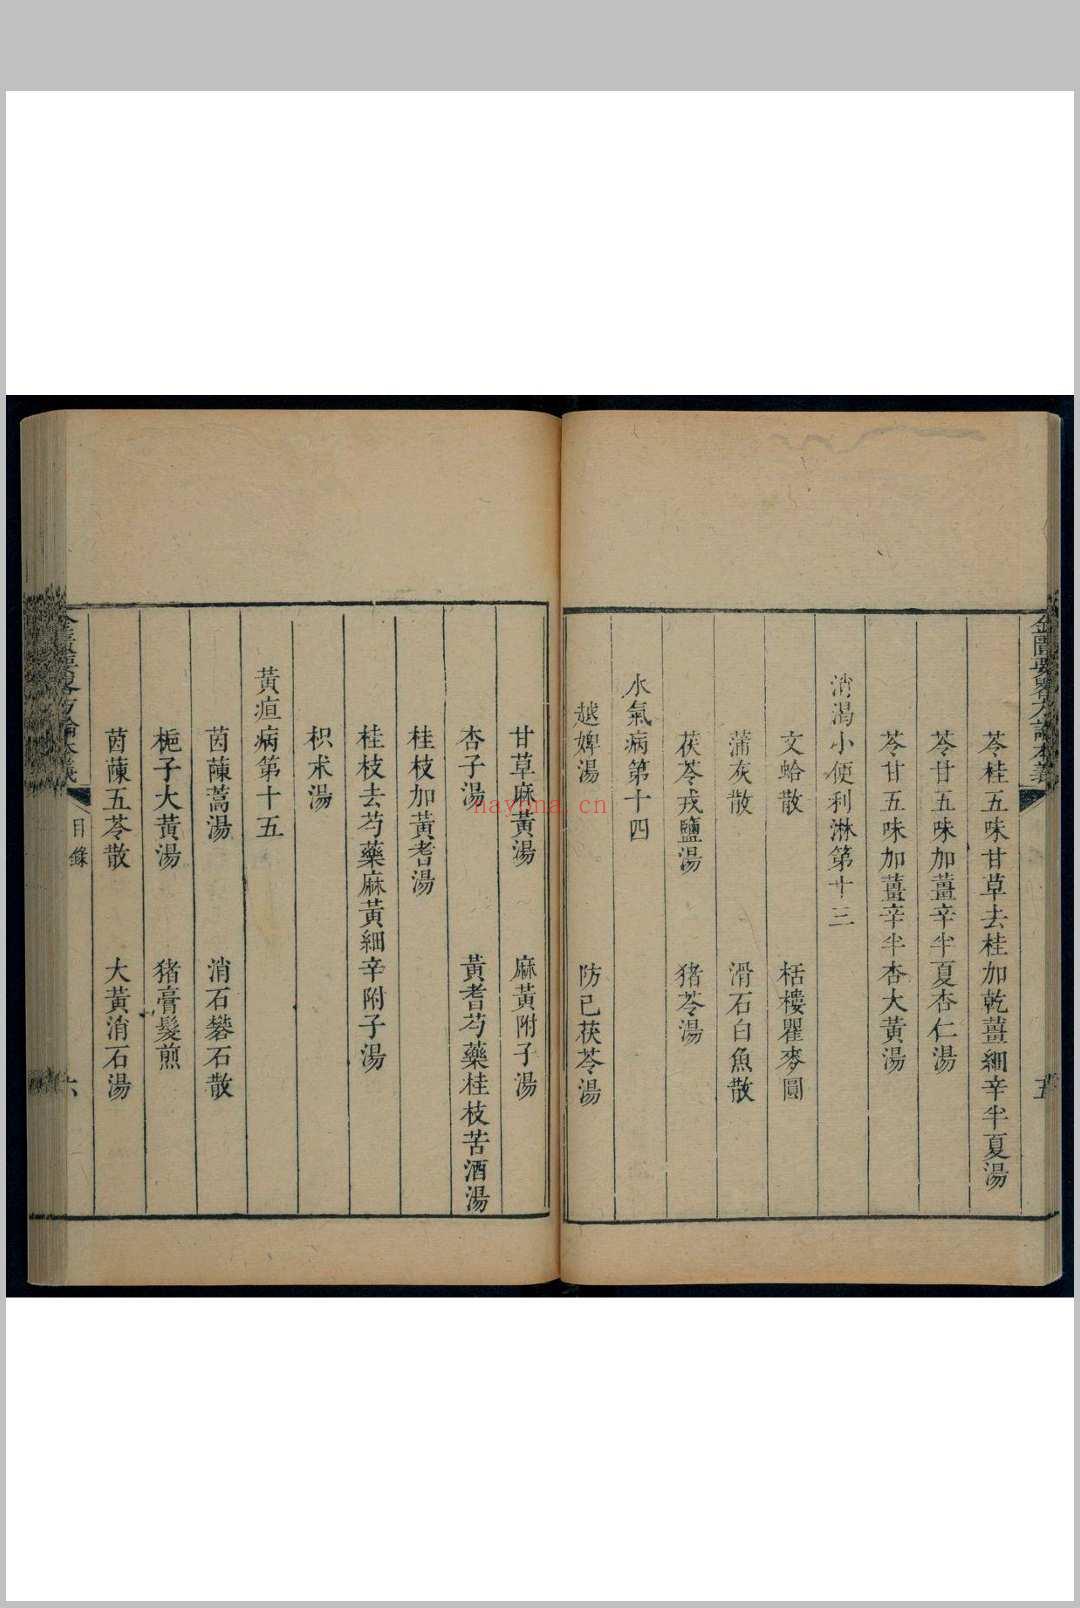 金匱要畧方論本義
五
苓桂五味甘草去桂加乾薑細辛半夏湯
苓甘五味加薑辛半夏杏仁湯
苓甘五味加薑辛半杏大黃湯
消渴小便利淋第十三
文蛤散 栝樓瞿麥圓
蒲灰散 滑石白魚散
茯苓戎鹽湯 猪苓湯
水氣病第十四
越婢湯 防已茯苓湯
甘草麻黃湯 麻黃附子湯
杏子湯 黃耆芍藥桂枝苦酒湯
桂枝加黃耆湯
桂枝去芍藥麻黃細辛附子湯
枳朮湯
黃疸病第十五
茵蔯蒿湯 消石礬石散
梔子大黃湯 猪膏髮煎
茵蔯五苓散 大黃消石湯
金匱要畧方論本義
目錄
六
nayona.cn